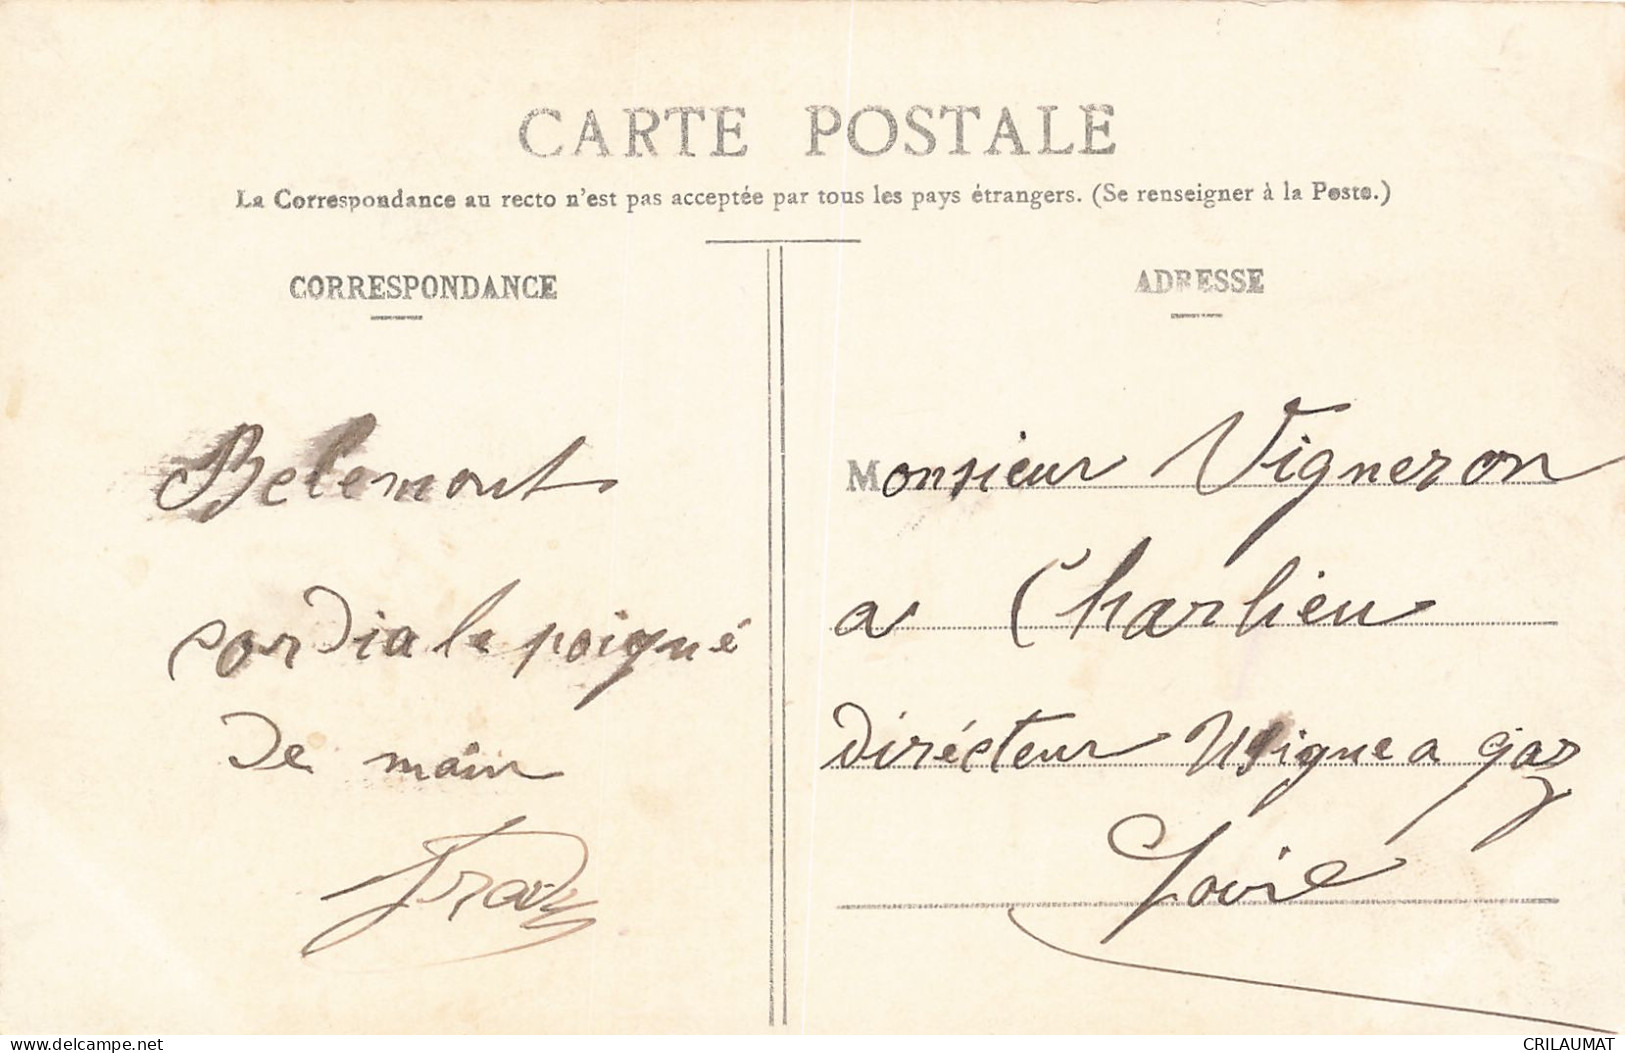 CARTE POSTALE
La Correspondance au recto n'est pas acceptée par tous les pays étrangers. (Se renseigner à la Poste.)
CORRESPONDANCE
Belemont
cordiale poigné
De main
ADRESSE
Monsieur Vigneron
a Charlieu
Dirécteur Usigne a gaz
Loire
delcampe.net
CRILAUMAT